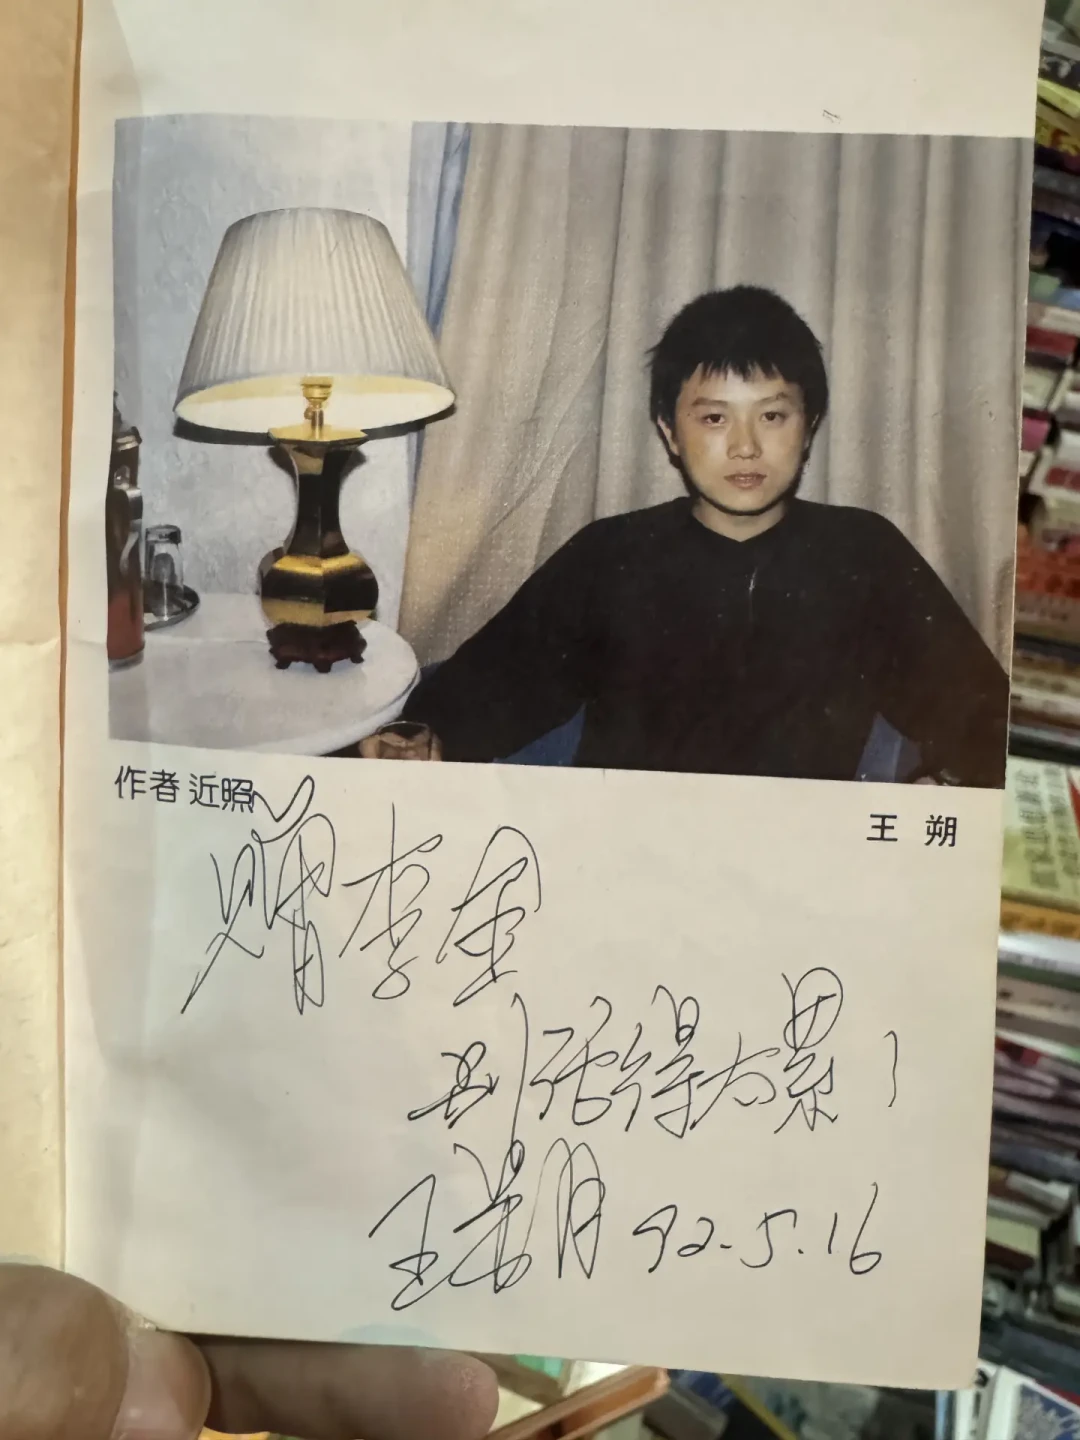 作者近照
王朔
赠李全
别活得太累！
王朔 92.5.16